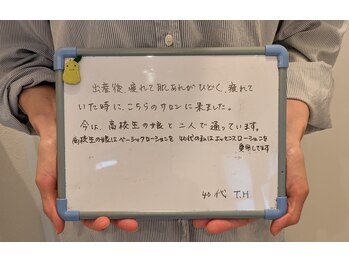 出産後 疲れて肌あれがひどく、疲れて
いた時に、こちらのサロンに来ました。
今は、高校生の娘と二人で通っています。
高校生の娘はベーシックローションを 40代の私はエッセンスローションを
愛用してます
40代 T.H